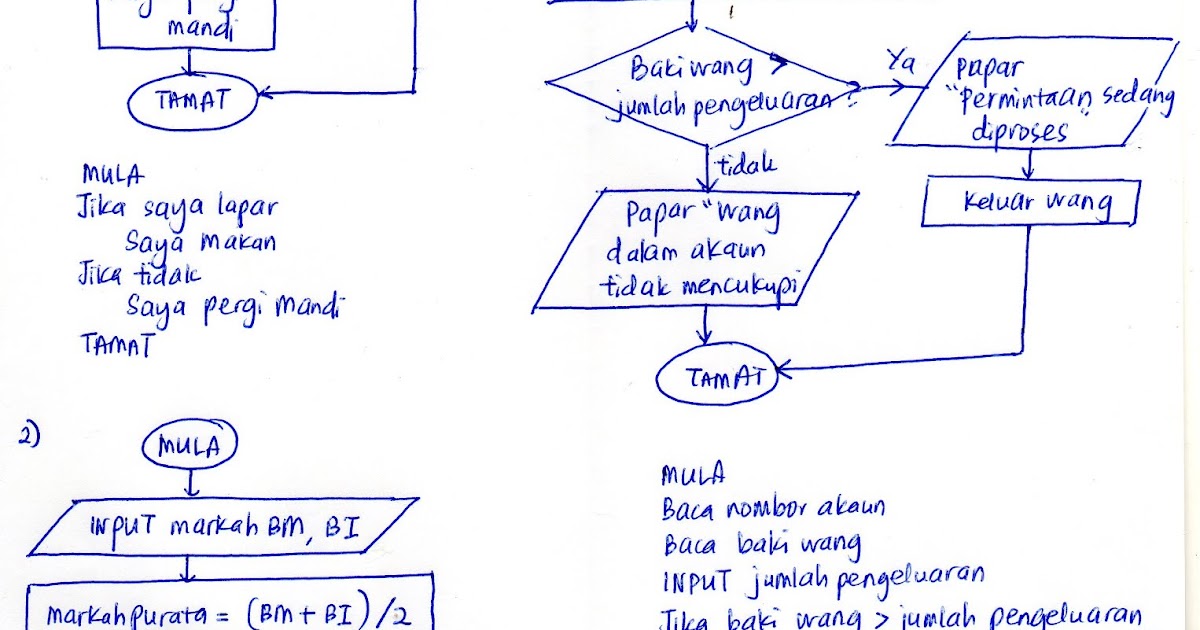 mandi
TAMAT
MULA
Jika saya lapar
Saya makan
Jika tidak
Saya pergi mandi
TAMAT
2)
MULA
INPUT markah BM, BI
markahpurata = (BM + BI)/2
Baki wang >
jumlah pengeluaran?
Ya
papar
"Permintaan sedang
diproses"
tidak
Keluar wang
Papar "Wang
dalam akaun
tidak mencukupi
TAMAT
MULA
Baca nombor akaun
Baca baki wang
INPUT jumlah pengeluaran
Jika baki wang > jumlah pengeluaran